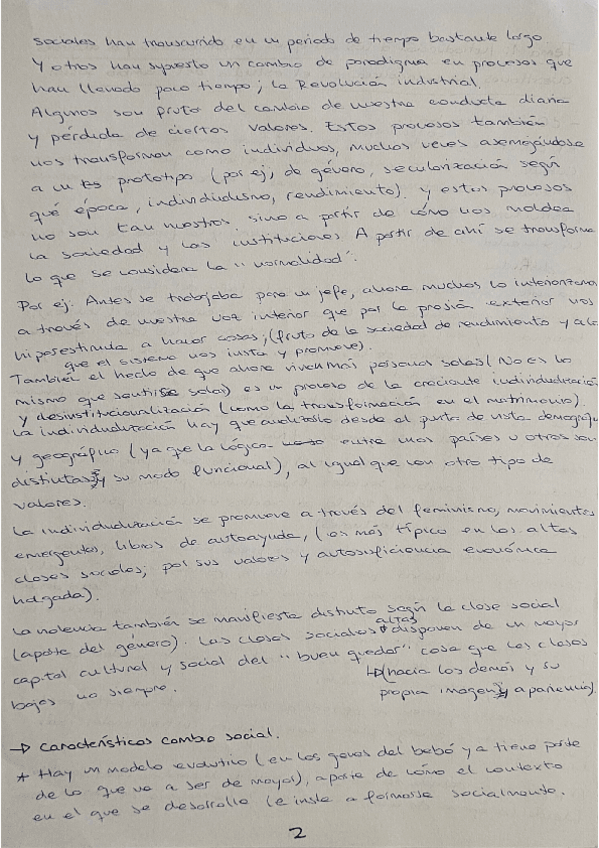 sociales han transcurrido en un periodo de tiempo bastante largo
Y otros han supuesto un cambio de paradigma en procesos que
han llevado poco tiempo; la Revolución industrial.
Algunos son fruto del cambio de nuestra conducta diaria
y pérdida de ciertos valores. Estos procesos también
nos transforman como individuos, muchas veces asemejándose
a un prototipo (por ej, de género, secularización según
qué época, individualismo, rendimiento) y estos procesos
no son tan nuestros, sino a partir de cómo nos moldea
la sociedad y las instituciones A partir de ahí se transforma
lo que se considera la "normalidad".
Por ej: Antes se trabajaba para un jefe, ahora muchos lo interiorizan
a través de nuestra voz interior que por la presión exterior nos
hiperestimula a hacer cosas; (fruto de la sociedad de rendimiento y a lo
que el sistema nos insta y promueve).
También el hecho de que ahora vivan más personas solas (No es lo
mismo que sentirse solas) es un proceso de la creciente individualización
y desinstitucionalización (como la transformación en el matrimonio).
La individualización hay que analizarlo desde el punto de vista demográfico
y geográfico (ya que la lógica entre unos países u otros son
distintas y su modo funcional), al igual que con otro tipo de
valores.
La individualización se promueve a través del feminismo, movimientos
emergentes, libros de autoayuda, (es más típico en las altas
clases sociales; por sus valores y autosuficiencia económica
holgada).
La violencia también se manifiesta distinto según la clase social
(aparte del género). Las clases sociales altas disponen de un mayor
capital cultural y social del "buen quedar" cosa que las clases
bajas no siempre.
↳ (hacia los demás y su
propia imagen y apariencia).
→ Características cambio social.
* Hay un modelo evolutivo (en los genes del bebé ya tiene parte
de lo que va a ser de mayor), aparte de cómo el contexto
en el que se desarrolla le insta a formarse socialmente.
2